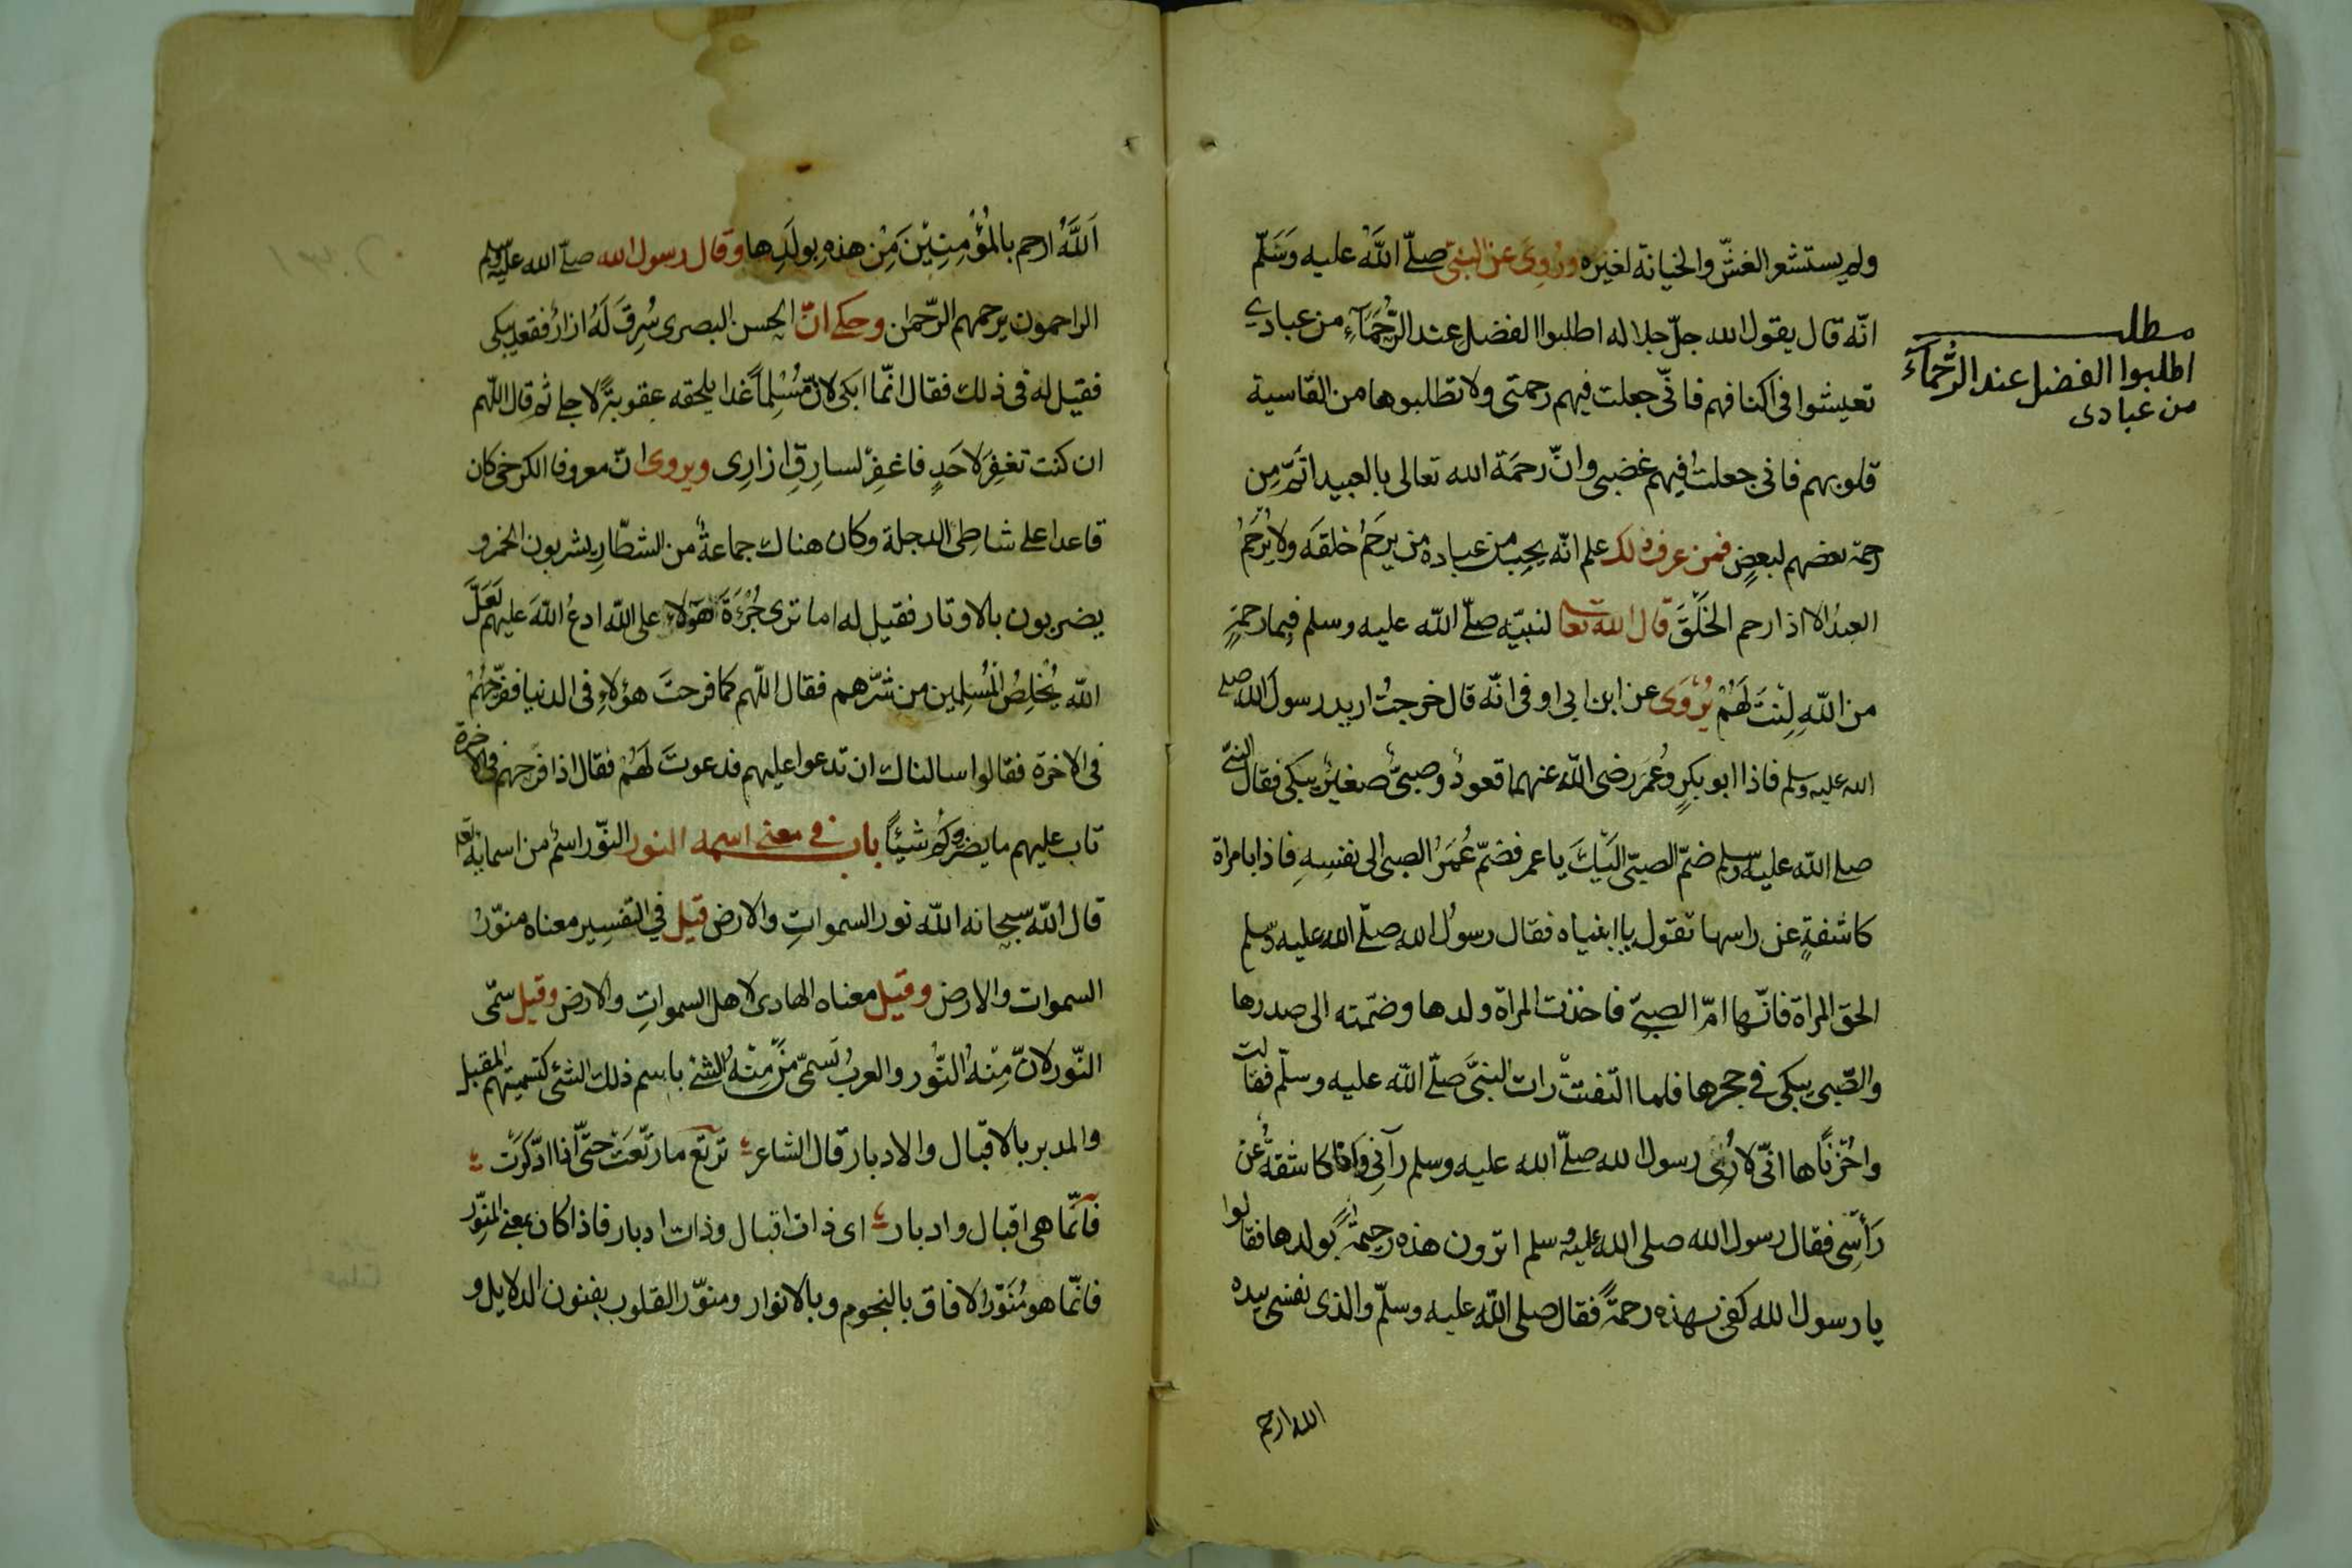 ولم يستشعر الغشّ والخيانة لغيره ورُوِىَ عن النبىّ صلّے اللَّهُ عليه وَسَلّم
انّه قال يقول الله جلّ جلاله اطلبوا الفضل عند الرُّحَمَآءِ من عبادي
تعيشوا فى اكنافهم فانّى جعلت فيهم رحمتى ولا تطلبوها من القاسية
قلوبهم فانى جعلتُ فيهم غضبى وانّ رحمَة الله تعالى بالعبيد اتمّ مِن
رحمة بعضهم لبعضٍ فمن عرف ذلك علم انّه يحِبّ من عباده من يَرحَمُ خلقَه ولا يُرحَمُ
العبدُ الا اذا رحم الخَلْقَ قال الله تعا لنبيّه صلّے اللّه عليه وسلم فبِما رحمةٍ
من اللّهِ لِنتَ لَهُمْ يُرْوَى عن ابن ابى اوفى انّه قال خرجتُ اريد رسولَ الله صلے
الله عليه وسلم فاذا ابو بكرٍ وعُمَرَ رضى اللّه عنهما قعودٌ وصبىٌّ صغيرٌ يبكى فقال النبىّ
صلے اللّه عليه وسلم ضمّ الصبىّ اليكَ يا عمر فضمّ عُمَرُ الصبى الى نفسِهِ فاذا بامراة
كاشفةٍ عن راسها تقول يا ابنياه فقال رسولُ الله صلّے الله عليه وسلم
الحق المراة فانّها امّ الصبىّ فاخذت المراة ولدها وضمّته الى صدرها
والصّبى يبكى فے حجرها فلما التفتتْ رات النبىَّ صلّے اللّه عليه وسلّم فقالت
واحُزْنَاها انّى لا رُئى رسول الله صلّے الله عليه وسلم رآنى وانا كاشفةٌ عن
رَأْسِى فقال رسول الله صلى الله عليه وسلم اترون هذه رحيمةً بولدها فقالوا
يا رسول الله كفى بهذه رحمةً فقال صلى اللّه عليه وسلّم والذى نفسى بيده
الله ارحم
مطلب
اطلبوا الفضل عند الرُّحَمَآءَ
من عبادى
اَللَّهُ ارحم بالمُؤْمِنِيْنَ مِنْ هذهِ بولَدِها وقال رسول الله صلّے الله عليه وسلم
الراحمون يرحمهم الرّحمن وحكے انّ الحسن البصرى سُرِقَ لَهُ ازارٌ فقعد يبكى
فقيل له فى ذلك فقال انّما ابكى لانّ مُسْلِماً غدا يلحقه عقوبةً لاجلے ثم قال اللهم
ان كنت تغفِرَ لاحَدٍ فاغفِرْ لسارِقِ ازارِى ويروى انّ معروفا الكرخى كان
قاعدا على شاطِى الدجلة وكان هناك جماعةٌ من الشطّارِ يشربون الخمر و
يضربون بالاوتار فقيل له اما ترى جُرْءَةَ هَؤلاءِ على اللّه ادعُ اللّهَ عليهم لَعَلَّ
اللّه يُخلِصُ المُسْلِمين من شرّهم فقال اللّهم كما فرحتَ هؤلاءِ فى الدنيا ففرّحهُمْ
فى الاخرة فقالوا سالناك ان تدعوا عليهم فدعوتَ لَهُمْ فقال اذا فرّحهم فى الاخرة
تاب عليهم ما يضركُم شَيْئاً باب فے معنے اسمه النور النّور اسْم من اسمايه تعا
قال اللّه سبحانه اللّه نور السمواتِ والارض قيل في التفسِير معناه منوّرُ
السموات والارض وقيل معناه الهادى لاهل السمواتِ والارض وقيل سمّى
النّور لانّ مِنْهُ النُّور والعربُ تسمّى مَنْ مِنْهُ الشئ باسم ذلك الشئ كتسميتهم المقبل
والمدبر بالاقبال والادبار قال الشاعر ترتع ما رتّعَتْ حتّى اذا ادّكرَت
فانّما هى اقبال وادبار اى ذات اقبال وذات ادبار فاذا كان بمعنے المنوّر
فانّما هو مُنَوّر الافاق بالنجوم وبالانوار ومنوّر القلوب بفنون الدلايل و